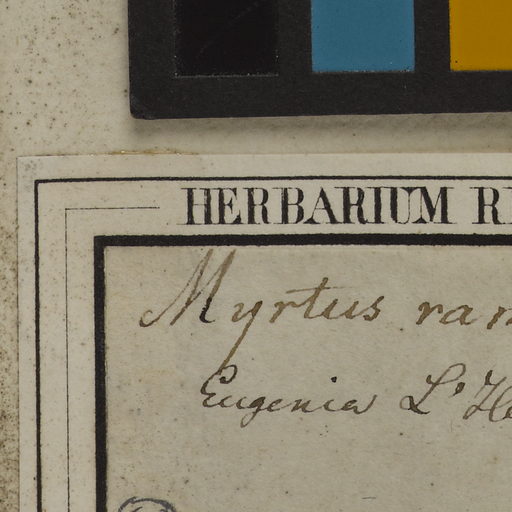 HERBARIUM R
Myrtus ram
Eugenia L'He